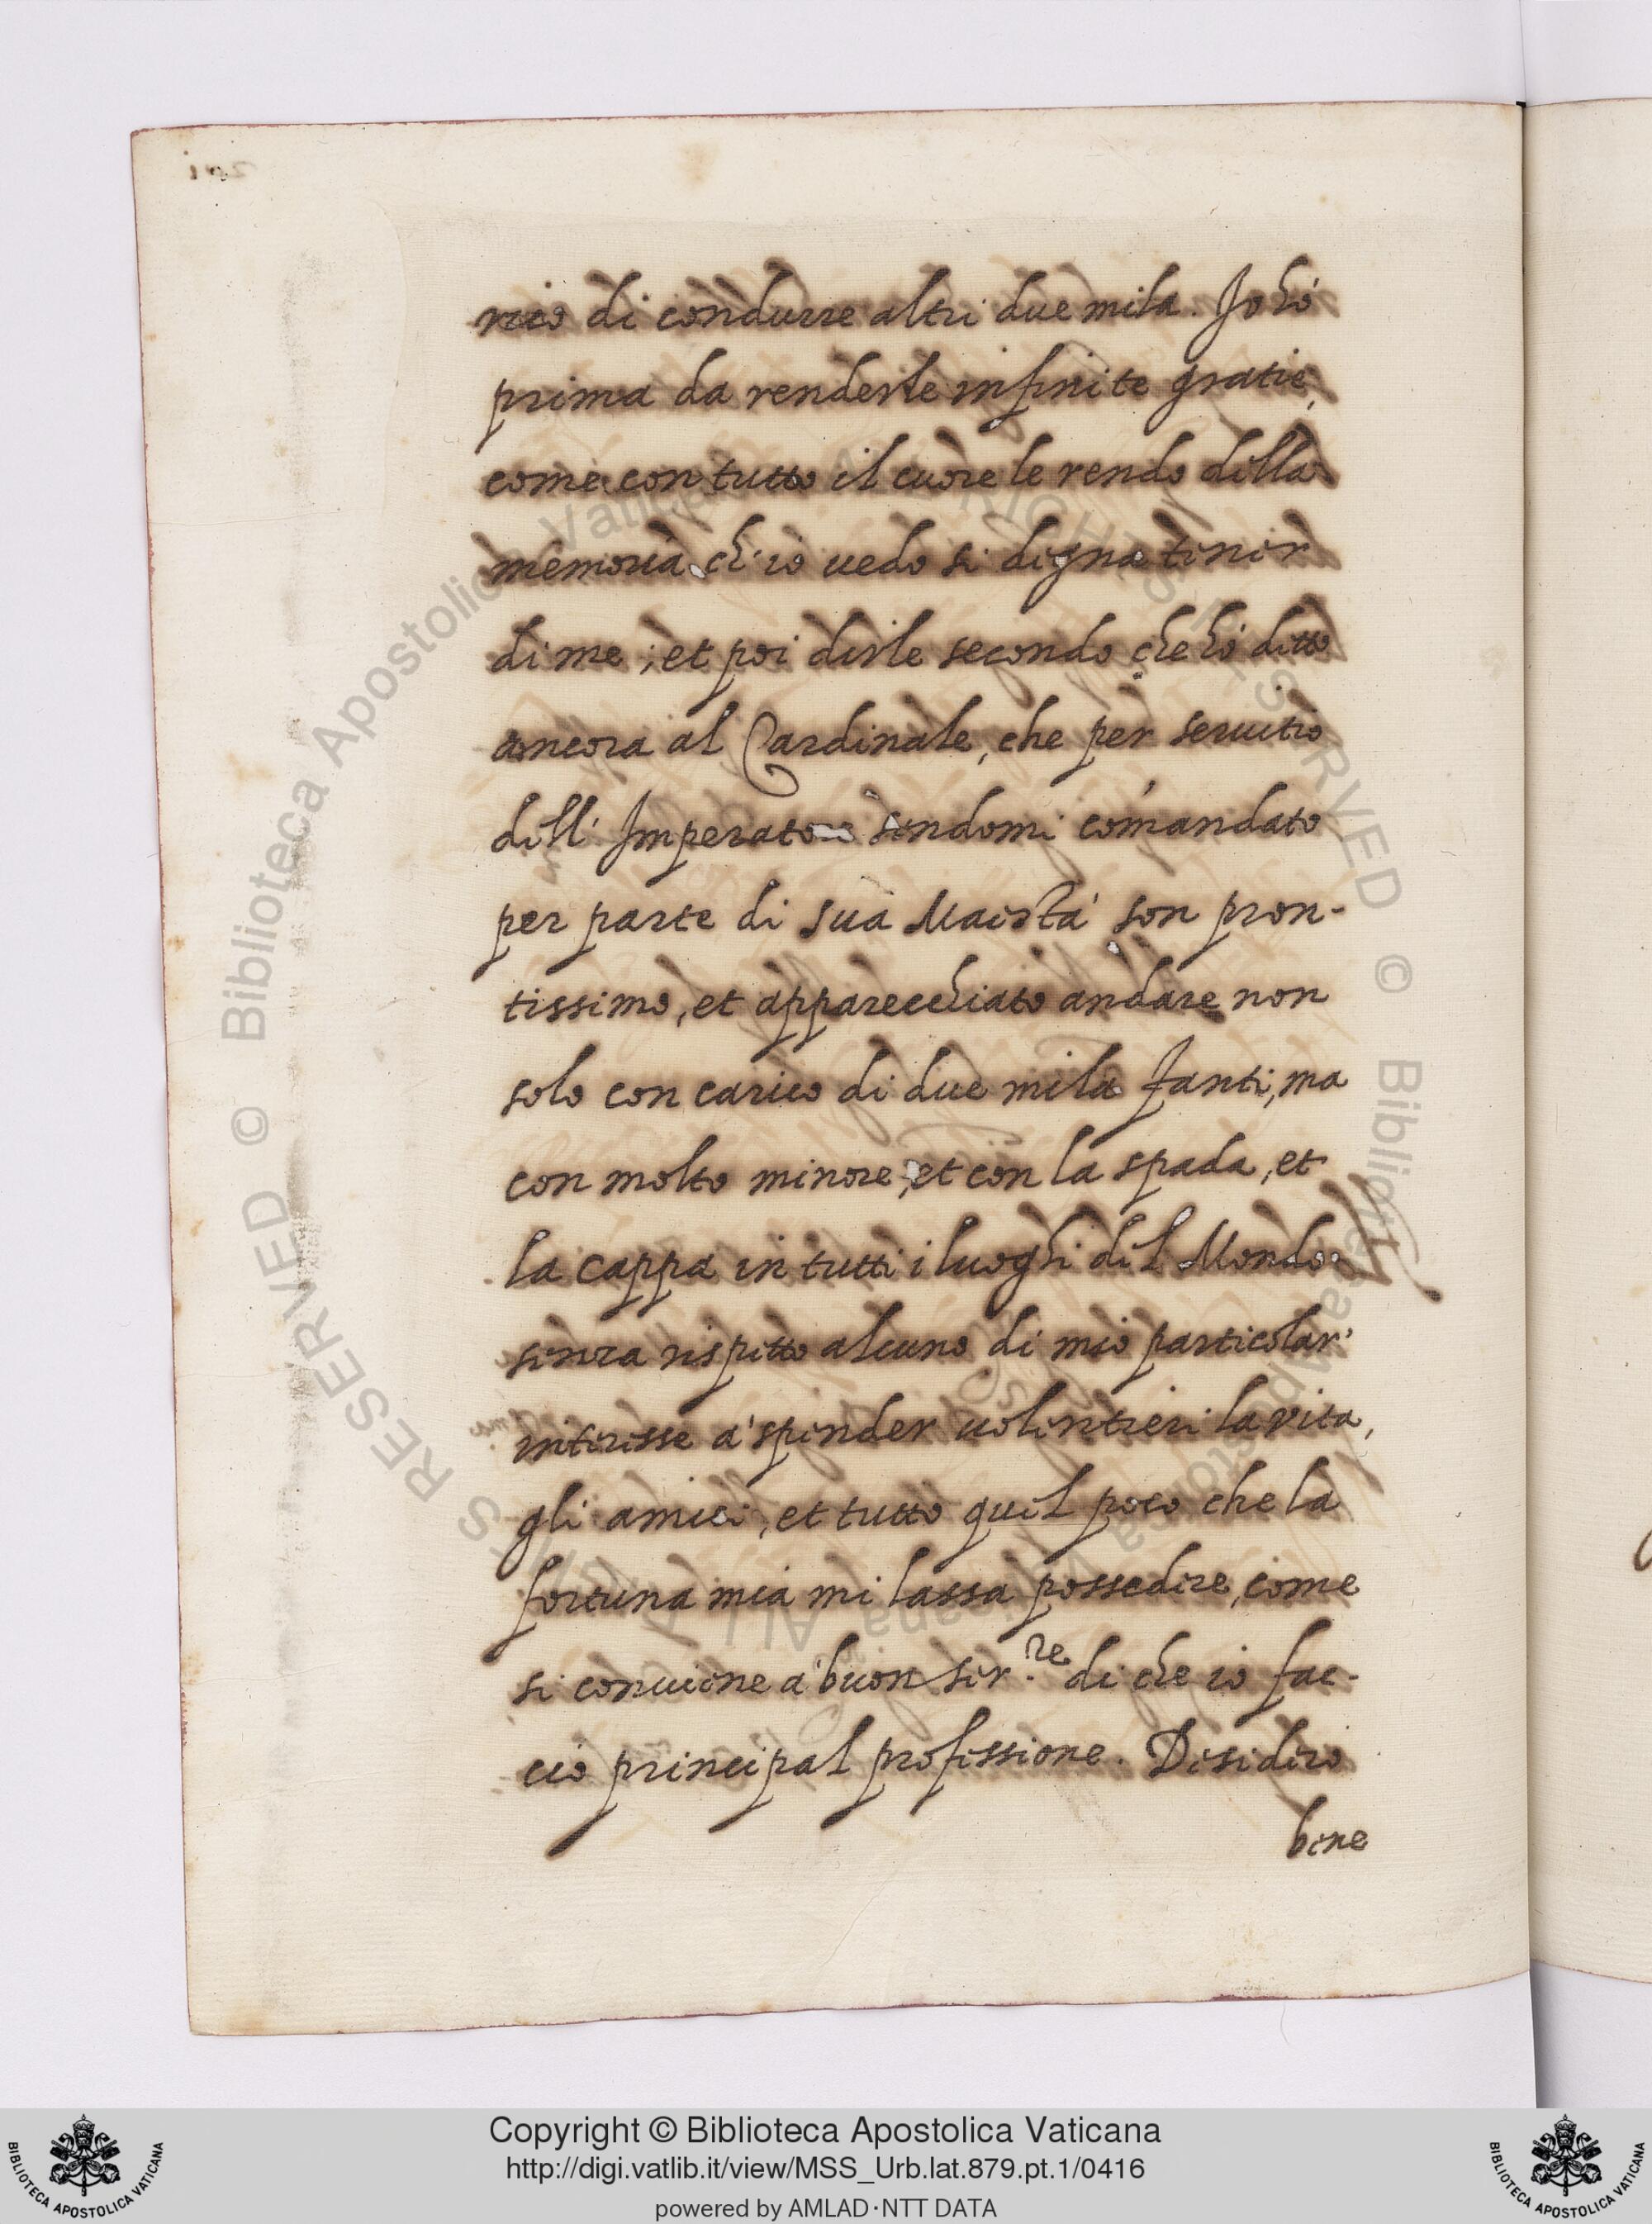 rico di condurre altri due mila. Io hò
prima da renderle infinite gratie,
come con tutto il cuore le rendo della
memoria ch'io uedo si degna tener
di me; et poi dirle secondo che hò detto
ancora al Cardinale, che per seruitio
dell' Imperatore sendomi comandato
per parte di sua Maestà son pron-
tissimo, et apparecchiato andare non
solo con carico di due mila fanti, ma
con molto minore, et con la spada, et
la cappa in tutti i luoghi del Mondo
senza rispetto alcuno di mio particolar'
interesse à spender uolentieri la vita,
gli amici, et tutto quel poco che la
fortuna mia mi lassa possedere, come
si conuiene à buon ser.re di che io fac-
cio principal professione. Desidero
bene
Copyright © Biblioteca Apostolica Vaticana
http://digi.vatlib.it/view/MSS_Urb.lat.879.pt.1/0416
powered by AMLAD·NTT DATA
BIBLIOTECA APOSTOLICA VATICANA
BIBLIOTECA APOSTOLICA VATICANA